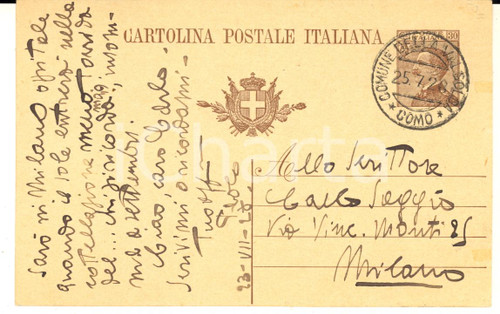 CARTOLINA POSTALE ITALIANA
COMUNE BELLA
25.7.2
* COMO *
Sarò in Milano ospitale
quando il sole entrerà nella
costellazione meno torrida
del... mi ricorda, insom-
ma a settembre.
Ciao, caro Carlo.
Scrivimi e ricordami
tuo aff.
23-VII-28
Allo Scrittore
Carlo Poggio
Via Vinc. Monti 25
Milano
iCharta